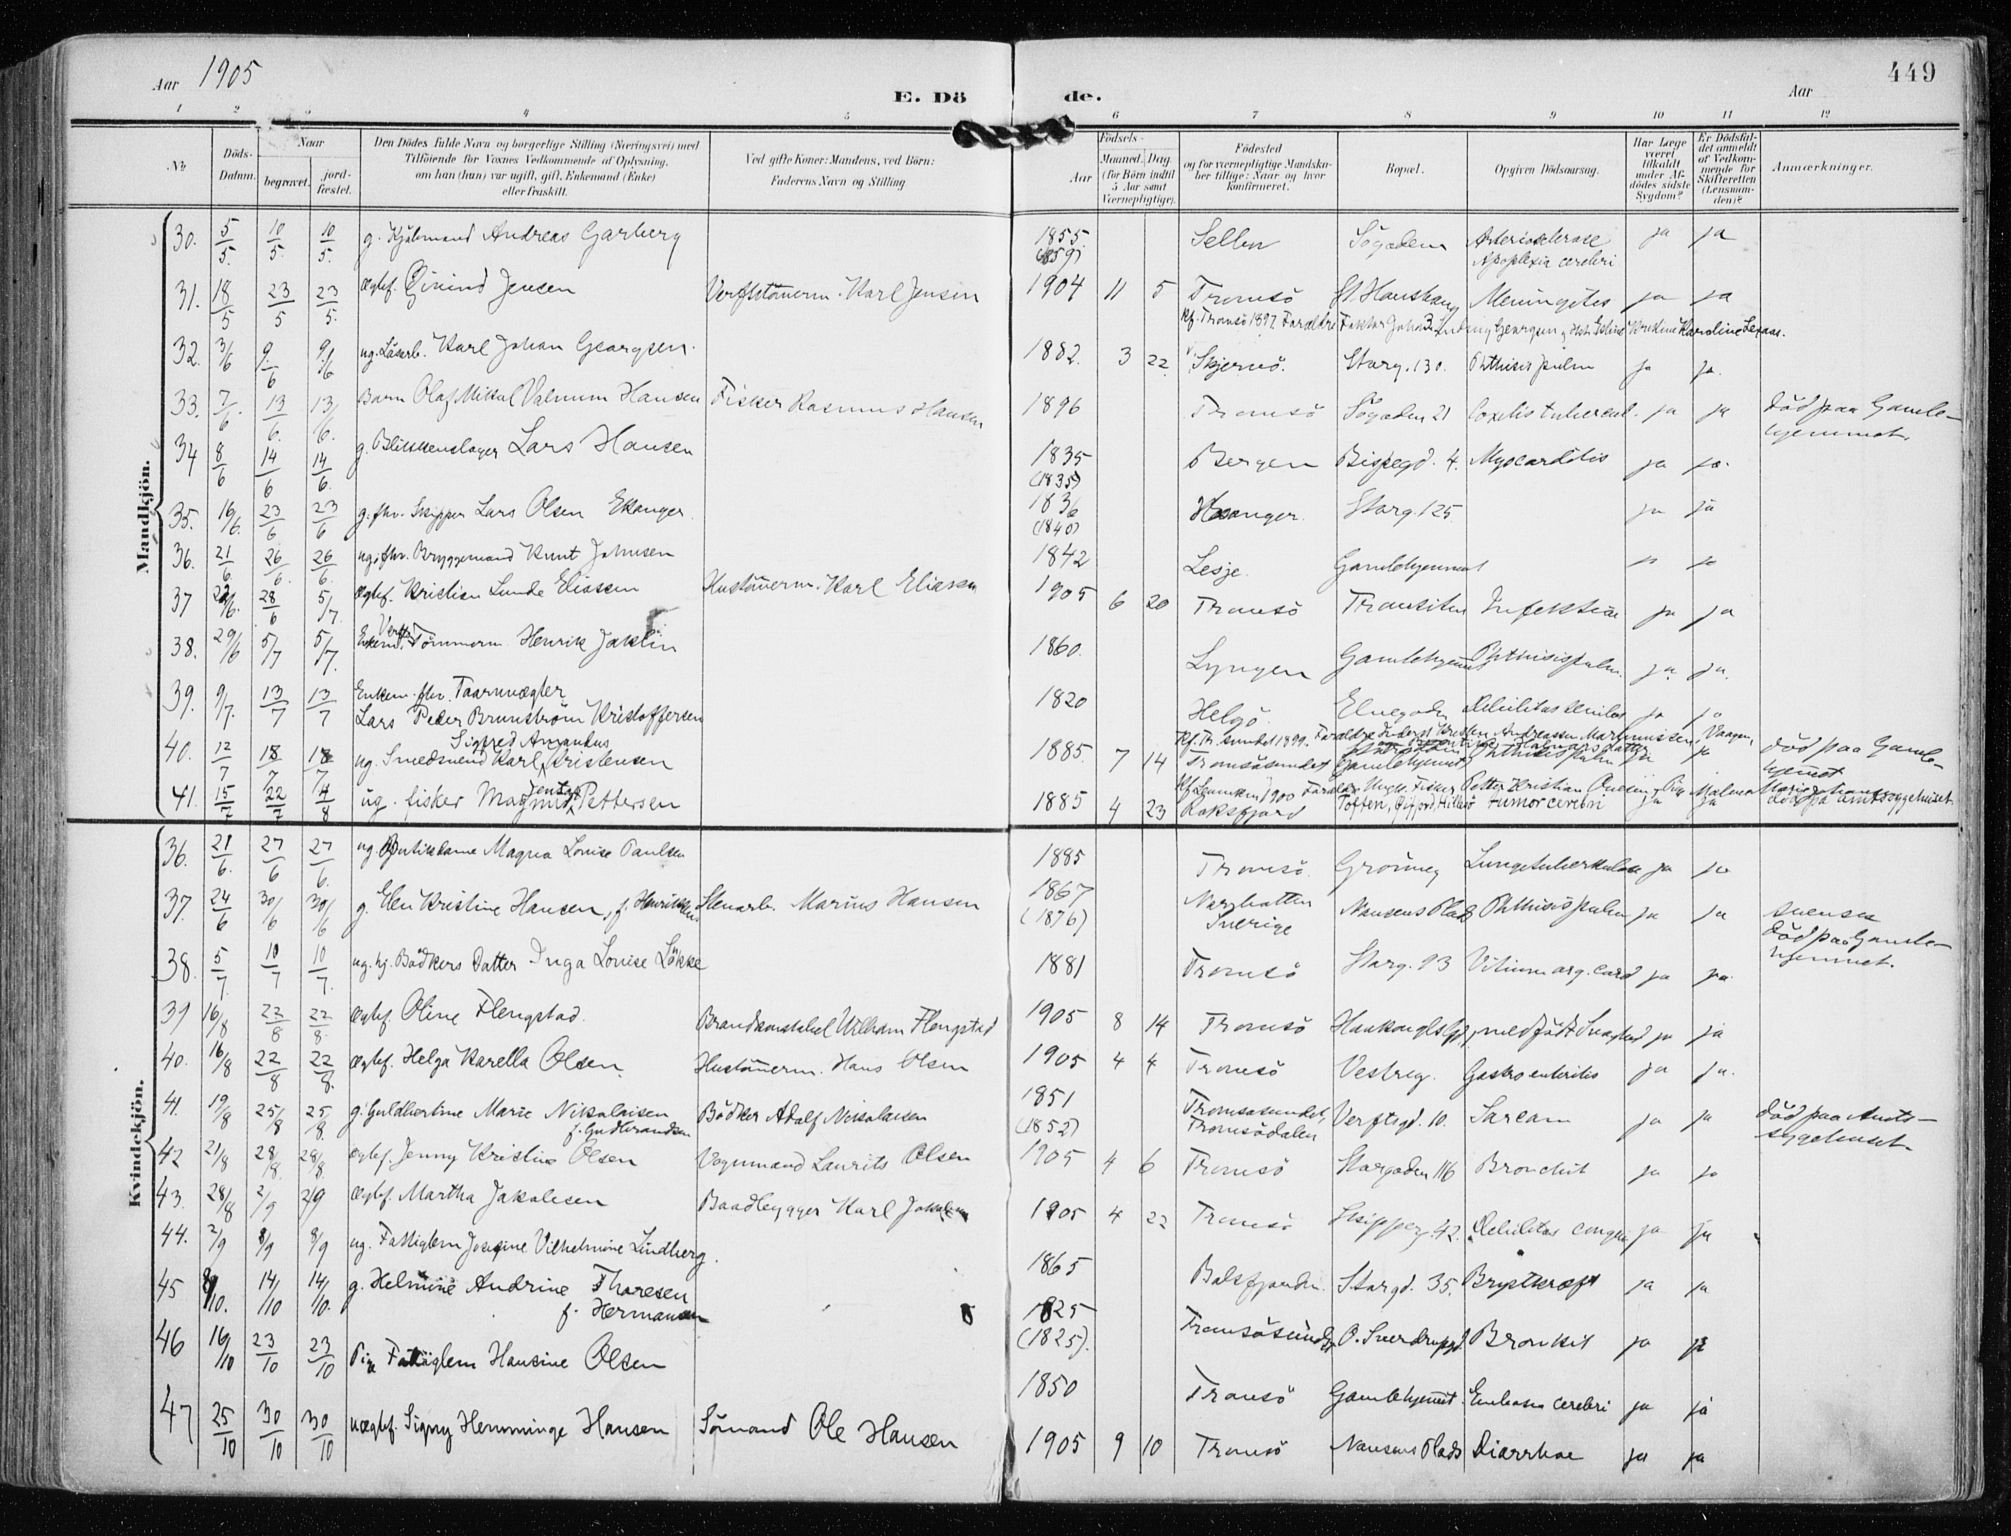 Aar 1905
E. Dö de.
Aar
449
1 2 3 4 5 6 7 8 9 10 11 12
No
Döds-Datum.
Naar
begravet. jord-fæstet.
Den Dödes fulde Navn og borgerlige Stilling (Næringsvei) med
Tilföiende for Voxnes Vedkommende af Oplysning,
om han (hun) var ugift, gift, Enkemand (Enke)
eller fraskilt.
Ved gifte Koner: Mandens, ved Börn:
Faderens Navn og Stilling.
Födsels-
Aar Maaned. Dag.
(for Börn indtil
5 Aar samt
Værnepligtige).
Födested
og for værnepligtige Mandska-
ber tillige: Naar og hvor
konfirmeret.
Bopæl.
Opgiven Dödsaarsag.
Har Læge
været
tilkaldt
under Af-
dödes sidste
Sygdom?
Er Dödsfal-
det anmeldt
af Vedkom-
mende for
Skifteretten
(Lensman-
den)?
Anmærkninger.
Mandkjön.
30. 5/5. 10/5. 10/5. g. Kjöbmand Andreas Garberg 1855. (1859) Sögaden Arterioslerose Apoplexia cerebri ja ja
31. 18/5 23/5 23/5. ægtef. Öivind Jensen Karl Jensen 1904 11 5 Tromsö St. Hanshaug Meningites ja ja
32. 3/6 9/6 9/6 ug. Karl Johan Georgsen. 1882. 3 22 Skjervö. Storg. 130. Phthisis pulm ja ja.
33. 7/6. 13/6. 13/6. Barn Olaf Mikal Hansen Fisker Rasmus Hansen 1896 Tromsö Sögaden 21 Coxitis tubercul. ja ja död paa Gamle-
hjemmet.
34 8/6 14/6 14/6. g. Blikkenslager Lars Hansen 1835 (1835) Bergen Bispegd. 4. Myocarditis ja ja.
35. 16/6. 23/6 23/6 g. fhv. Skipper Lars Olsen Ekanger. 1836 (1840) Storg. 125. ja ja
36. 21/6. 26/6. 26/6. ug. fhv. Bryggemand Knut Johnsen 1842 Lesje. Gamlehjemmet ja
37 28/6 5/7. ægtef. Kristian Lunde Eliassen Hustömerm. Karl Eliassen 1905 6 20 Tromsö ja ja
38. 29/6 5/7 5/7. Enkem. Verfts Tömmerm. Henrik Jaklin 1860. Lyngen Gamlehjemmet Phthisis pulm. ja. ja.
39. 9/7. 13/7 13/7 Enkem. fhv. Taarnvægter
Lars Peder Brunström Kristoffersen 1820 Helgö. Elvegaden Debilitas senilis ja ja
40. 12/7 18/7 18/7 ug. Smedsvend Karl Sigfred Amandus Kristensen 1885 7 14 Tromsösundet Gamlehjemmet Phthisis pulm ja ja död paa Gamle-
hjemmet
41. 15/7 22/7 4/8 ug. fisker Magnus Jentoft Pettersen 1885 4 23 Roksfjord Toften, Hillesö tumor cerebri ja ja
Kvindekjön.
36. 21/6. 27/6 27/6. ug. Butikdame Magna Louise Paulsen 1885 Tromsö. Grönneg Lungetuberkulose ja ja
37. 24/6 30/6 30/6 g. Elen Kristine Hansen, f. Henriksen Stenarb. Marius Hansen 1867 (1876) Sverige Nansens Plads Phthisis pulm ja ja svensk
38. 5/7. 10/7 10/7. ug. hj. Bödkers Datter Inga Louise Lökke 1881 Tromsö Storg. 93 Vitium org. cord ja ja. död paa Gamle-
hjemmet.
39 16/8 22/8 22/8. ægtef. Oline Flengstad. Brandkonstabel Wilhelm Flengstad 1905 8 14 Tromsö medfödt Svaghed ja ja
40. 16/8 22/8 22/8. ægtef. Helga Karella Olsen Hustömerm. Hans Olsen 1905 4 4 Tromsö Vestreg. Gastroenteritis ja ja.
41. 19/8 25/8 25/8. g. Guldbertine Marie Nikolaisen Bödker Adolf Nikolaisen 1851 (1852) Tromsösundet, Tromsödalen Verftsgd. 10. Sarcom ja ja död paa Amts-
sygehuset.
42 21/8 28/8. 28/8. ægtef. Jenny Kristine Olsen Vognmand Laurits Olsen 1905 4 6 Tromsö Storgaden 116 Bronchit ja ja
43. 28/8 2/9 2/9 ægtef. Martha Jakobsen Baadbygger Karl Jakobsen 1905 4 22 Tromsö Skipperg. 42. Debilitas congen ja ja
44. 2/9 8/9 8/9 ug. Fattiglem Josefine Vilhelmine Lindberg. 1865 Balsfjorden. Storgd. 35. Brystkræft ja ja
45 8/10. 14/10 14/10. g. Helmine Andrine Thoresen
f. Hermansen 1825 (1825). Tromsösundet O. Sverdrupsgd Bronkit ja ja
46 16/10 23/10 23/10 Pige Fattiglem Hansine Olsen 1850 Tromsö Gamlehjemmet. Embolia cerebri ja ja
47 25/10 30/10 30/10 uægtef. Signy Hemminge Hansen Sömand Ole Hansen 1905 9 10 Tromsö Nansens Plads Diarrhoe ja ja